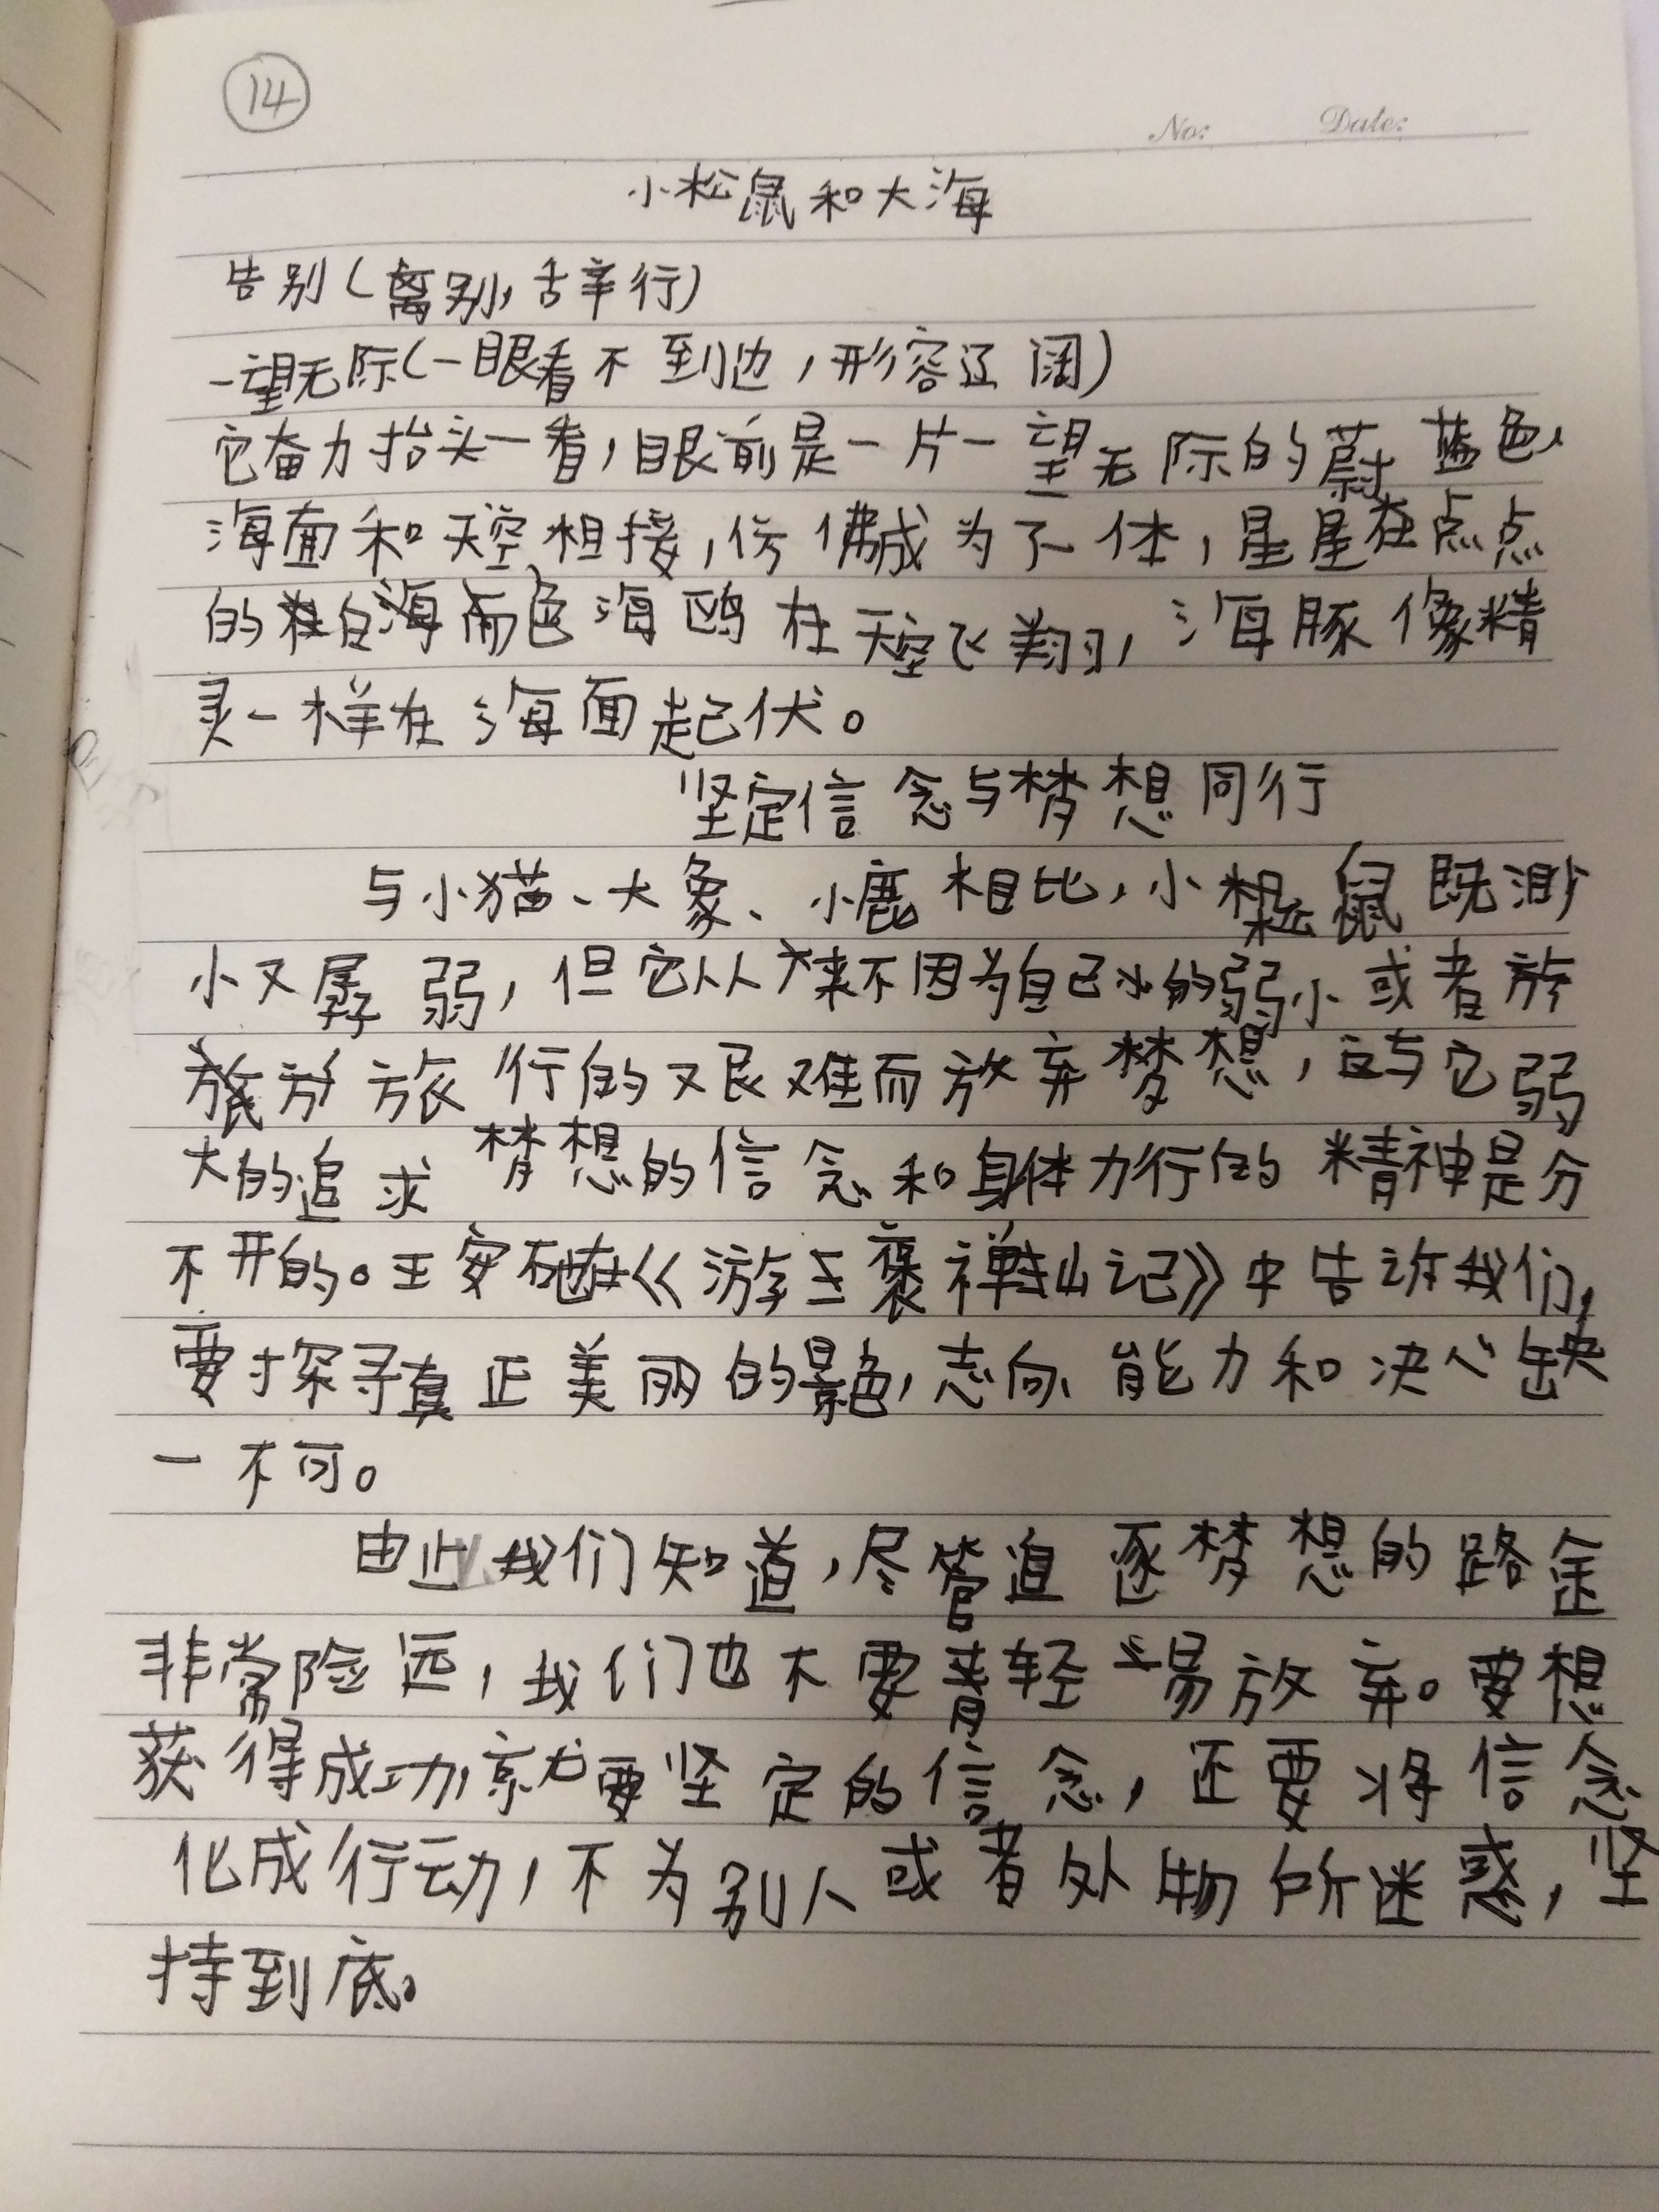 14
No: Date:
小松鼠和大海
告别(离别,舌辛行)
一望无际(一眼看不到边,形容辽阔)
它奋力抬头一看,眼前是一片一望无际的蔚蓝色,
海面和天空相接,仿佛成为了一体,星星点点
的白色海鸥在天空飞翔,海豚像精
灵一样在海面起伏。
坚定信念与梦想同行
与小猫、大象、小鹿相比,小松鼠既渺
小又孱弱,但它从来不因为自己的弱小或者
旅行的艰难而放弃梦想,这与它弱
大的追求梦想的信念和身体力行的精神是分
不开的。王安石在《游褒禅山记》中告诉我们,
要探寻真正美丽的景色,志向、能力和决心缺
一不可。
由此我们知道,尽管追逐梦想的路途
非常险远,我们也不要轻易放弃。要想
获得成功,就要坚定的信念,还要将信念
化成行动,不为别人或者外物所迷惑,坚
持到底。